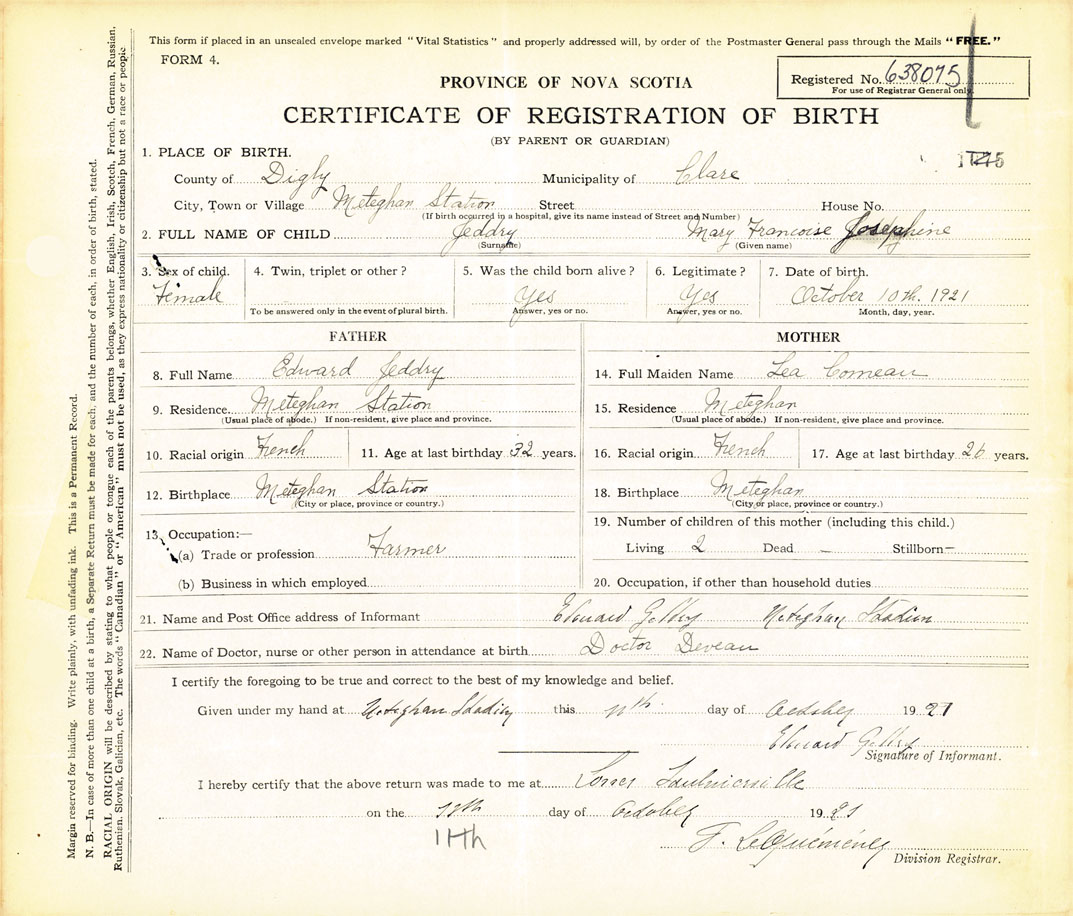 This form if placed in an unsealed envelope marked "Vital Statistics" and properly addressed will, by order of the Postmaster General pass through the Mails "FREE."
FORM 4.
Registered No. 638075
For use of Registrar General only
PROVINCE OF NOVA SCOTIA
CERTIFICATE OF REGISTRATION OF BIRTH
(BY PARENT OR GUARDIAN)
1. PLACE OF BIRTH.
County of Digby Municipality of Clare
City, Town or Village Meteghan Station Street House No.
(If birth occurred in a hospital, give its name instead of Street and Number)
2. FULL NAME OF CHILD Jeddry Mary Francoise Josephine
(Surname) (Given name)
3. Sex of child. 4. Twin, triplet or other? 5. Was the child born alive? 6. Legitimate? 7. Date of birth.
Female Yes Yes October 10th. 1921
To be answered only in the event of plural birth. Answer, yes or no. Answer, yes or no. Month, day, year.
FATHER
8. Full Name Edward Jeddry
9. Residence. Meteghan Station
(Usual place of abode.) If non-resident, give place and province.
10. Racial origin French 11. Age at last birthday 32 years.
12. Birthplace Meteghan Station
(City or place, province or country.)
13. Occupation:—
(a) Trade or profession Farmer
(b) Business in which employed
MOTHER
14. Full Maiden Name Lea Comeau
15. Residence Meteghan
(Usual place of abode.) If non-resident, give place and province.
16. Racial origin French 17. Age at last birthday 26 years.
18. Birthplace Meteghan
(City or place, province or country.)
19. Number of children of this mother (including this child.)
Living 2 Dead – Stillborn –
20. Occupation, if other than household duties
21. Name and Post Office address of Informant Edward Meteghan Station
22. Name of Doctor, nurse or other person in attendance at birth Doctor Deveau
I certify the foregoing to be true and correct to the best of my knowledge and belief.
Given under my hand at Meteghan Station this 11th day of October 1921
Edward
Signature of Informant.
I hereby certify that the above return was made to me at Lower Saulnierville
on the 11th day of October 1921
11th
F. LeQuéméner
Division Registrar.
Margin reserved for binding. Write plainly, with unfading ink. This is a Permanent Record.
N. B.—In case of more than one child at a birth, a Separate Return must be made for each, and the number of each, in order of birth, stated.
RACIAL ORIGIN will be described by stating to what people or tongue each of the parents belongs, whether English, Irish, Scotch, French, German, Russian,
Ruthenian, Slovak, Galician, etc. The words "Canadian" or "American" must not be used, as they express nationality or citizenship but not a race or people